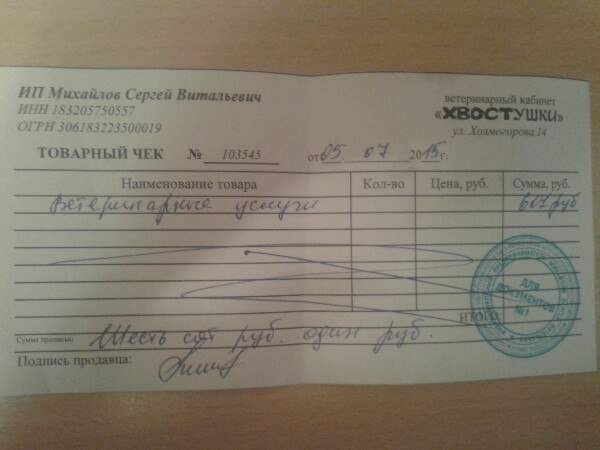 ИП Михайлов Сергей Витальевич
ИНН 183205750557
ОГРН 306183223500019
ветеринарный кабинет
«ХВОСТУШКИ»
ул. Холмогорова,14
ТОВАРНЫЙ ЧЕК № 103545 от 05. 07 2015г.
Наименование товара Кол-во Цена, руб. Сумма, руб.
Ветеринарные услуги 601 руб
ИТОГО
ДЛЯ
ДОКУМЕНТОВ
№1
Сумма прописью Шесть сот руб. один руб.
Подпись продавца: